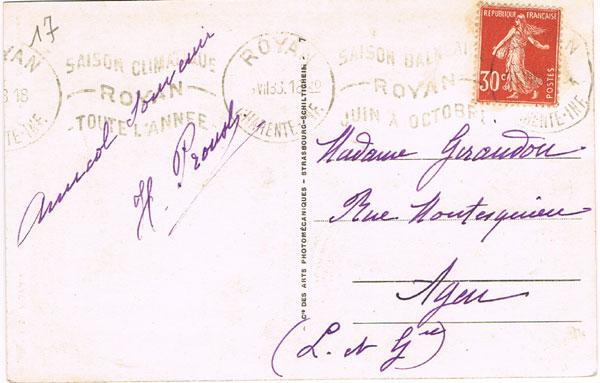 17
ROYAN
SAISON CLIMATIQUE
ROYAN
TOUTE L'ANNEE
ROYAN
VII 33
CHARENTE-INF
SAISON BALNEAI
ROYAN
JUIN A OCTOBRE
ENTE-INF
REPUBLIQUE FRANÇAISE
30c
POSTES
Amical Souvenir
H.
Cie DES ARTS PHOTOMÉCANIQUES - STRASBOURG-SCHILTIGHEIM - 7
Madame Giraudon
Rue Montesquieu
Agen
(L. et Gne)